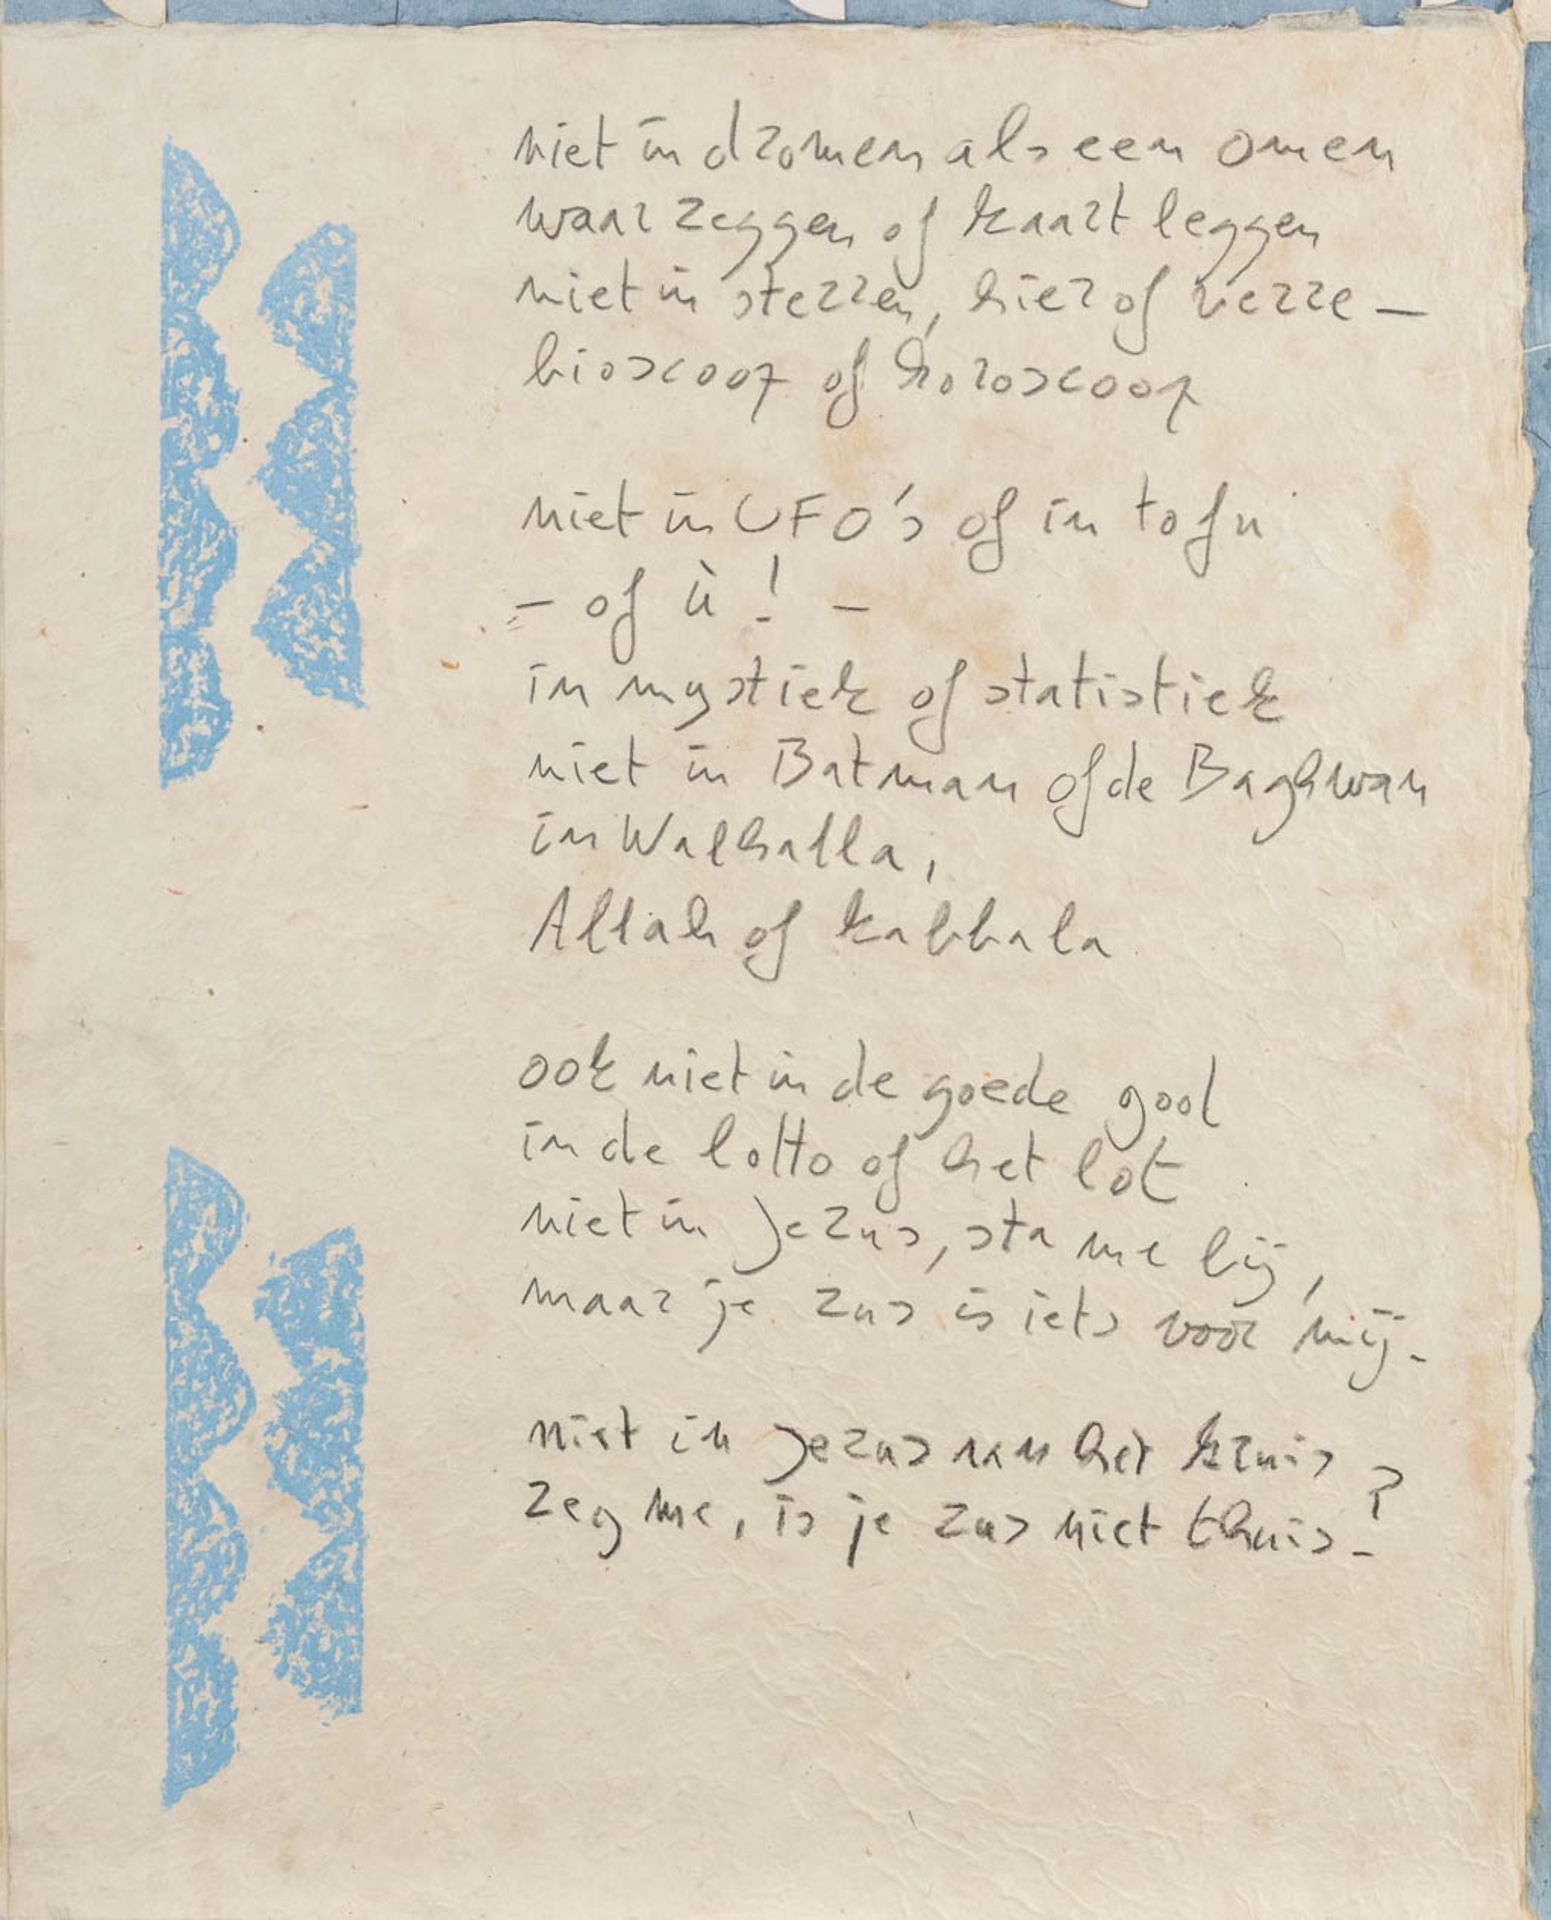 niet in dromen als een omen
waarzeggen of kaartleggen
niet in sterren, hier of verre –
bioscoop of horoscoop
niet in UFO's of in tofu
– of ù! –
in mystiek of statistiek
niet in Batman of de Baghwan
in Walhalla,
Allah of kabbala
ook niet in de goede god
in de lotto of het lot
niet in Jezus, sta me bij,
maar je zus is iets voor mij.
niet in Jezus aan het kruis
zeg me, is je zus niet thuis?